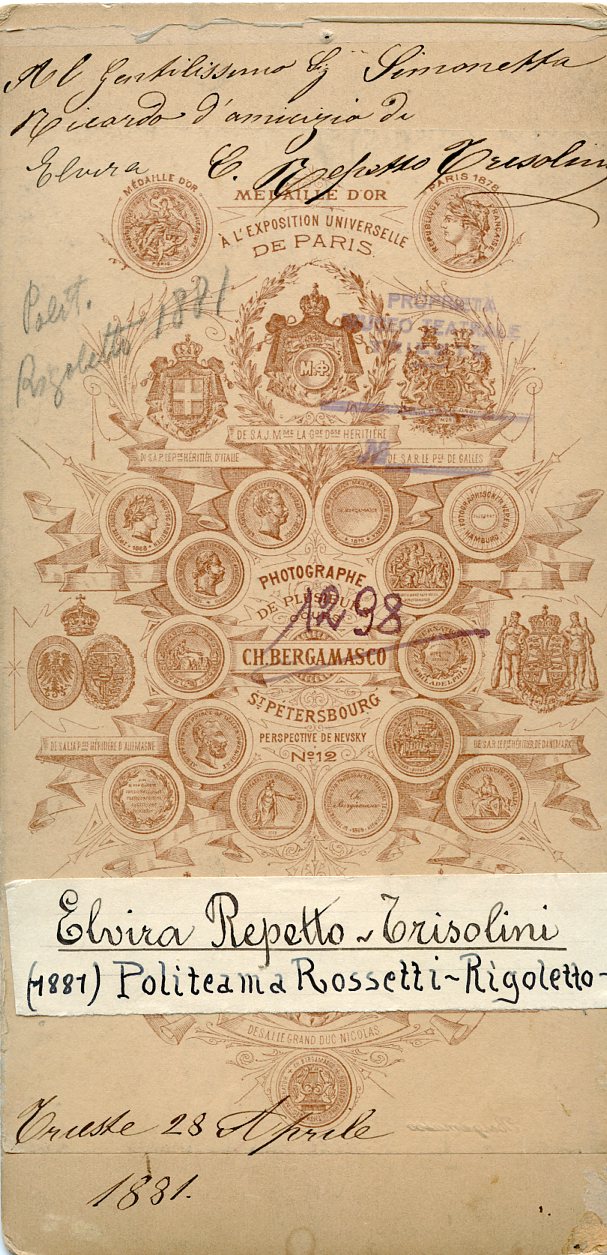 Al Gentilissimo Sigr Simonetta
Ricordo d'amicizia di
Elvira C. Repetto Trisolini
MÉDAILLE D'OR
PARIS 1878
RÉPUBLIQUE FRANÇAISE
MÉDAILLE D'OR
À L'EXPOSITION UNIVERSELLE
DE PARIS
Polit.
Rigoletto 1881
PROPRIETÀ
MUSEO TEATRALE
DE S.A.I. MME LA GDE DSSE HÉRITIÈRE
DE S.A.R. LE PCE HÉRITIER D'ITALIE
DE S.A.R. LE PCE DE GALLES
1868
1870
HAMBURG
PHOTOGRAPHE
DE PLUSIEURS
COURS
1298
CH. BERGAMASCO
PHILADELPHIA
ST PÉTERSBOURG
PERSPECTIVE DE NEVSKY
No 12
DE S.A.I. LA PCSSE HÉRITIÈRE D'ALLEMAGNE
DE S.A.R. LE PCE HÉRITIER DE DANEMARK
Ch. Bergamasco
Elvira Repetto-Trisolini
(1881) Politeama Rossetti-Rigoletto-
DE S.A.I. LE GRAND DUC NICOLAS
Trieste 28 Aprile
1881.